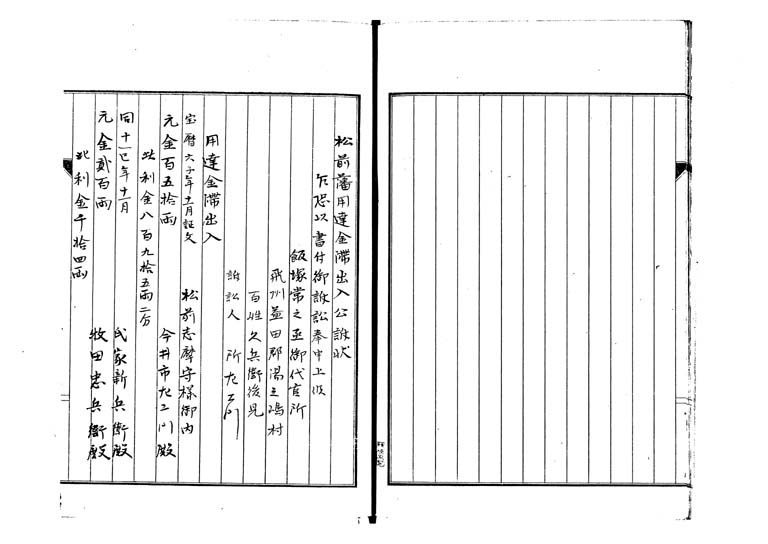 松前藩用達金滞出入公訴状
乍恐以書付御訴訟奉申上候
飯塚常之丞御代官所
飛州益田郡湯之嶋村
百姓久兵衛後見
訴訟人 所左エ門
用達金滞出入
宝暦六子年十二月証文
元金百五拾両 松前志摩守様御内
此利金八百九拾五両二分 今井市左エ門殿
同十一巳年十二月 氏家新兵衛殿
元金貳百両 牧田忠兵衛殿
此利金千拾四両